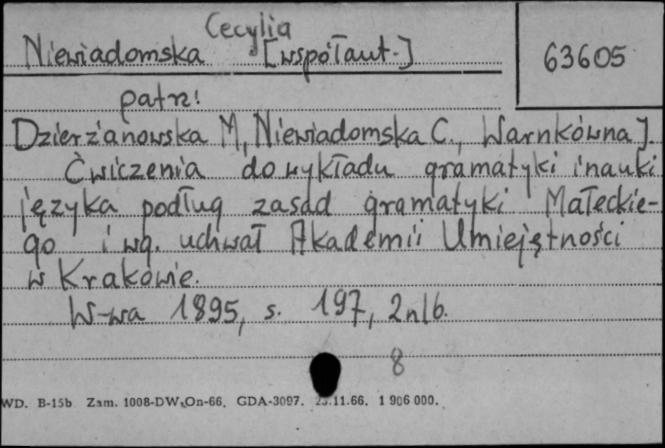 Cecylia
Niewiadomska [współaut.]
63605
patrz:
Dzierżanowska M, Niewiadomska C., Warnkówna J.
Ćwiczenia do wykładu gramatyki i nauki
języka podług zasad gramatyki Małeckie-
go i wg. uchwał Akademii Umiejętności
w Krakowie.
W-wa 1895, s. 197, 2nlb.
8
WD. B-15b Zam. 1008-DW,On-66. GDA-3097. 23.11.66. 1 906 000.